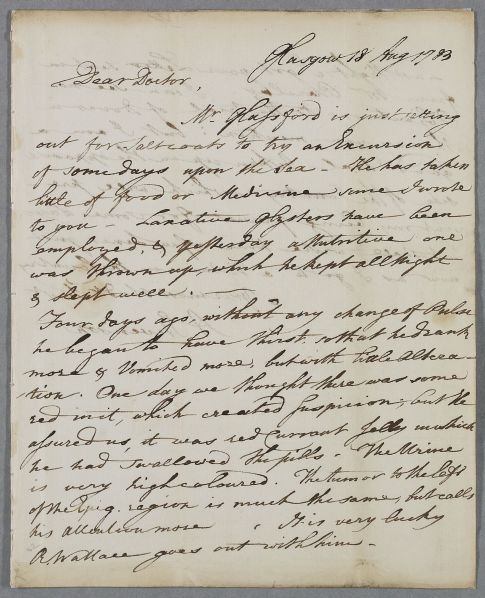 Glasgow 18 Aug 1783
Dear Doctor,
Mr Glassford is just setting
out for Saltcoats to try an Excursion
of some days upon the Sea - He has taken
little of food or Medicine since I wrote
to you - Laxative Glysters have been
employed, & yesterday a Nutritive one
was thrown up, which he kept all Night
& slept well. -
Four days ago, without any change of Pulse
he began to have thirst, so that he drank
more & Vomited more, but with little Altera-
tion. One day we thought there was some
red in it, which created Suspicion; but He
assured us, it was red Currant Jelly in which
he had swallowed the pills - The Urine
is very high coloured. The tumor to the left
of the Epig. region is much the same, but calls
his attention more. It is very lucky
R Wallace goes out with him -